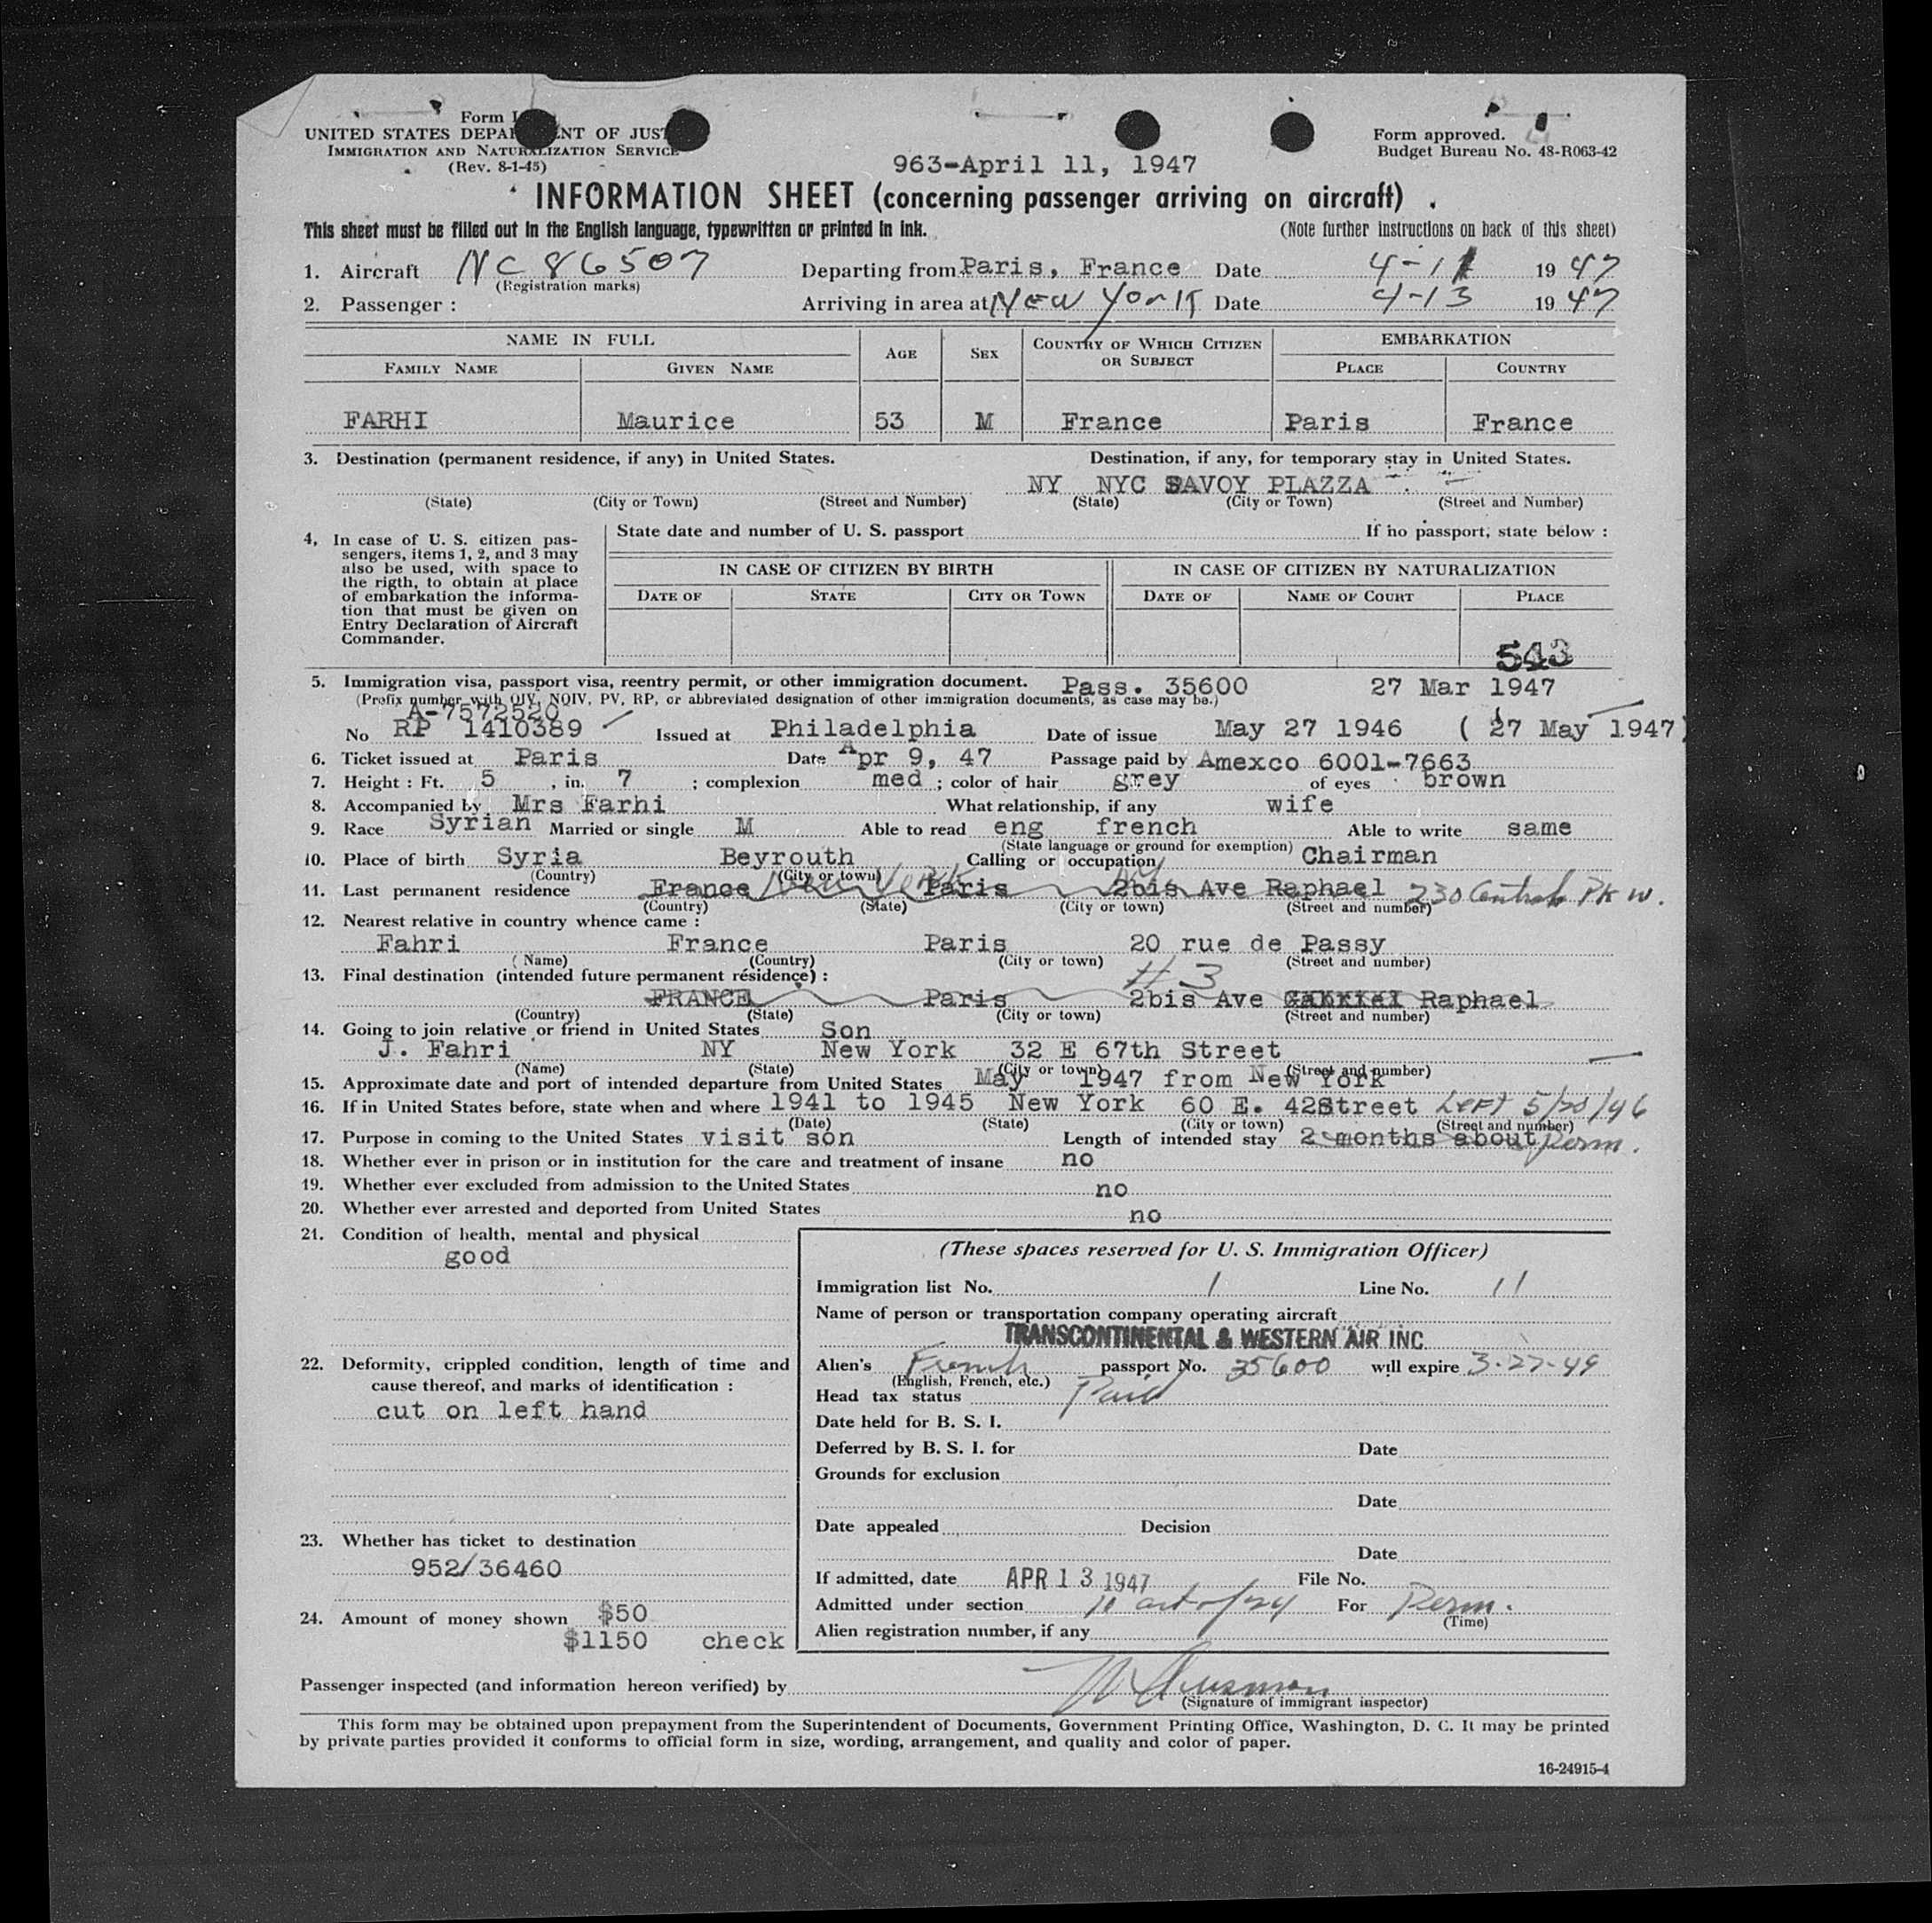 Form I
UNITED STATES DEPA NT OF JUS
IMMIGRATION AND NATURALIZATION SERVICE
(Rev. 8-1-45)
Form approved.
Budget Bureau No. 48-R063-42
963-April 11, 1947
INFORMATION SHEET (concerning passenger arriving on aircraft)
This sheet must be filled out in the English language, typewritten or printed in ink. (Note further instructions on back of this sheet)
1. Aircraft NC 86507 Departing from Paris, France Date 4-11 19 47
(Registration marks)
2. Passenger : Arriving in area at New York Date 4-13 19 47
NAME IN FULL AGE SEX COUNTRY OF WHICH CITIZEN OR SUBJECT EMBARKATION
FAMILY NAME GIVEN NAME PLACE COUNTRY
FARHI Maurice 53 M France Paris France
3. Destination (permanent residence, if any) in United States. Destination, if any, for temporary stay in United States.
NY NYC SAVOY PLAZZA
(State) (City or Town) (Street and Number) (State) (City or Town) (Street and Number)
4, In case of U. S. citizen pas-
sengers, items 1, 2, and 3 may
also be used, with space to
the rigth, to obtain at place
of embarkation the informa-
tion that must be given on
Entry Declaration of Aircraft
Commander.
State date and number of U. S. passport If no passport, state below :
IN CASE OF CITIZEN BY BIRTH IN CASE OF CITIZEN BY NATURALIZATION
DATE OF STATE CITY OR TOWN DATE OF NAME OF COURT PLACE
543
5. Immigration visa, passport visa, reentry permit, or other immigration document. Pass. 35600 27 Mar 1947
(Prefix number with QIV, NQIV, PV, RP, or abbreviated designation of other immigration documents, as case may be.)
A-7572520
No RP 1410389 Issued at Philadelphia Date of issue May 27 1946 ( 27 May 1947)
6. Ticket issued at Paris Date Apr 9, 47 Passage paid by Amexco 6001-7663
7. Height : Ft. 5 , in. 7 ; complexion med ; color of hair grey of eyes brown
8. Accompanied by Mrs Farhi What relationship, if any wife
9. Race Syrian Married or single M Able to read eng french Able to write same
(State language or ground for exemption)
10. Place of birth Syria Beyrouth Calling or occupation Chairman
(Country) (City or town)
11. Last permanent residence France New York Paris NY 2bis Ave Raphael 230 Central Pk W.
(Country) (State) (City or town) (Street and number)
12. Nearest relative in country whence came :
Fahri France Paris 20 rue de Passy
(Name) (Country) (City or town) (Street and number)
13. Final destination (intended future permanent résidence) : #3
FRANCE Paris 2bis Ave Gabriel Raphael
(Country) (State) (City or town) (Street and number)
14. Going to join relative or friend in United States Son
J. Fahri NY New York 32 E 67th Street
(Name) (State) (City or town) (Street and number)
15. Approximate date and port of intended departure from United States May 1947 from New York
16. If in United States before, state when and where 1941 to 1945 New York 60 E. 42Street Left 5/20/46
(Date) (State) (City or town) (Street and number)
17. Purpose in coming to the United States visit son Length of intended stay 2 months about Perm.
18. Whether ever in prison or in institution for the care and treatment of insane no
19. Whether ever excluded from admission to the United States no
20. Whether ever arrested and deported from United States no
21. Condition of health, mental and physical
good
22. Deformity, crippled condition, length of time and
cause thereof, and marks of identification :
cut on left hand
23. Whether has ticket to destination
952/36460
24. Amount of money shown $50
$1150 check
(These spaces reserved for U. S. Immigration Officer)
Immigration list No. 1 Line No. 11
Name of person or transportation company operating aircraft
TRANSCONTINENTAL & WESTERN AIR INC
Alien's French passport No. 35600 will expire 3-27-49
(English, French, etc.)
Head tax status Paid
Date held for B. S. I.
Deferred by B. S. I. for Date
Grounds for exclusion
Date
Date appealed Decision
Date
If admitted, date APR 13 1947 File No.
Admitted under section act of 24 For Perm.
(Time)
Alien registration number, if any
Passenger inspected (and information hereon verified) by
(Signature of immigrant inspector)
This form may be obtained upon prepayment from the Superintendent of Documents, Government Printing Office, Washington, D. C. It may be printed
by private parties provided it conforms to official form in size, wording, arrangement, and quality and color of paper.
16-24915-4